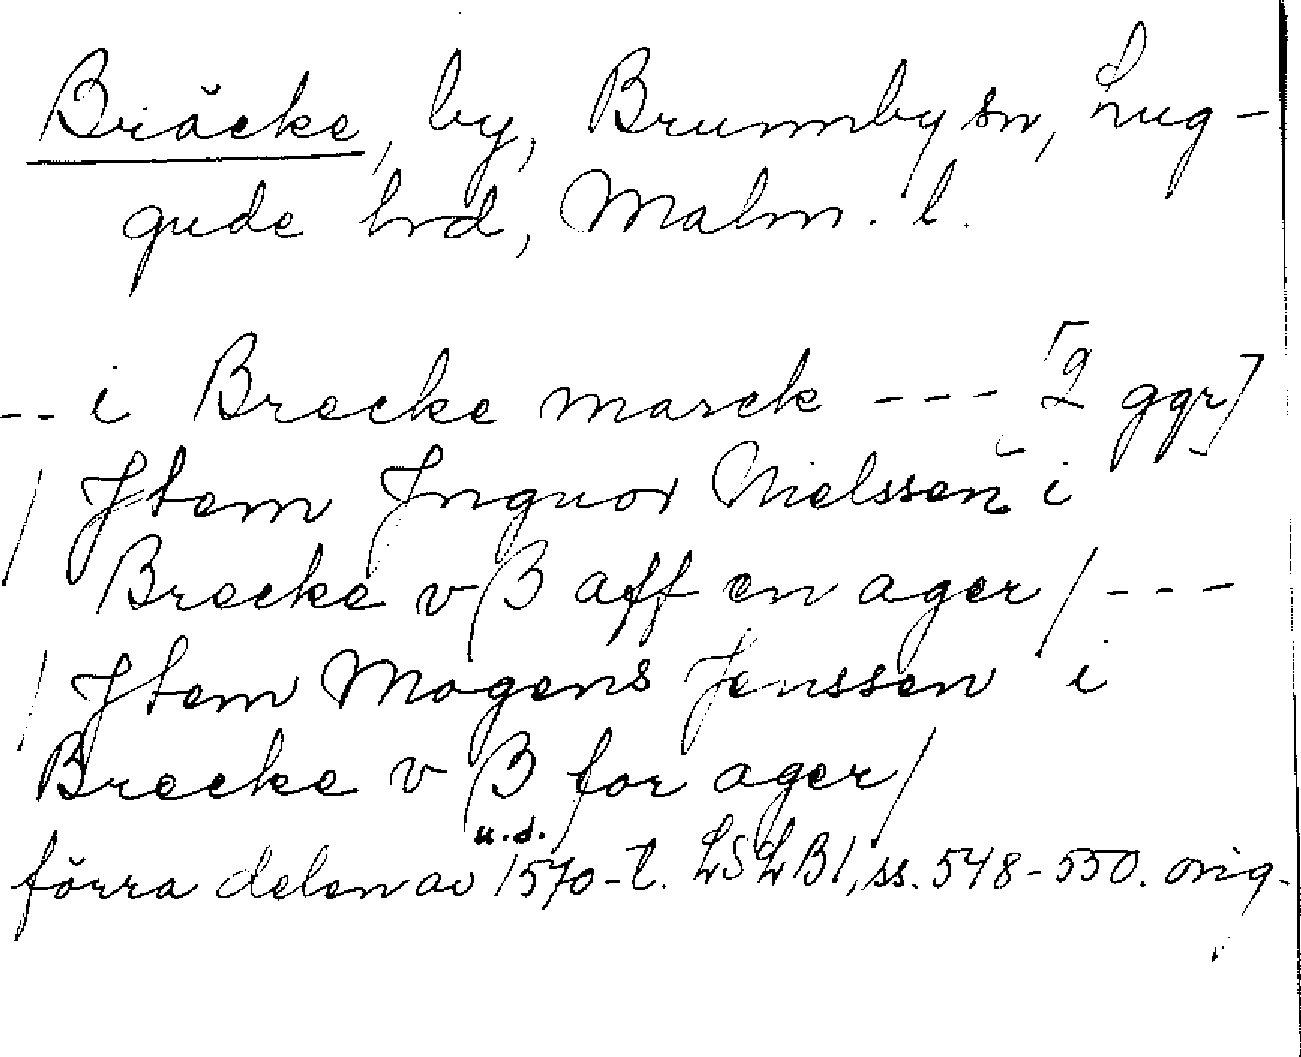 Bräcke, by, Brunnby sn, Lug-
gude hrd, Malm. l.
-- i Brecke marck --- [2 ggr]
/ Jtem Jnguor Nielssen i
Brecke v β aff en ager / ---
/ Jtem Mogens Jenssen i
Brecke v β for ager /
u.d.
förra delen av 1570-t. LSLB1, ss. 548-550. orig.